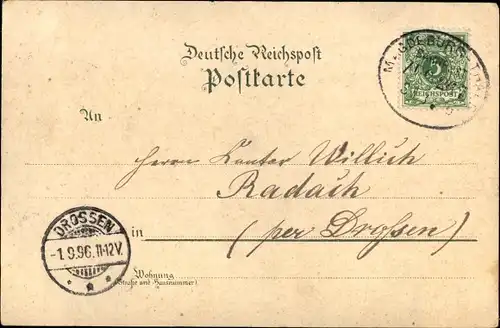 Deutsche Reichspost
Postkarte
MAGDEBURG-THALE
5
REICHSPOST
An
Herrn Kantor Willich
Radach
in (per Drossen)
DROSSEN
-1.9.96.11-12V.
Wohnung
(Straße und Hausnummer)